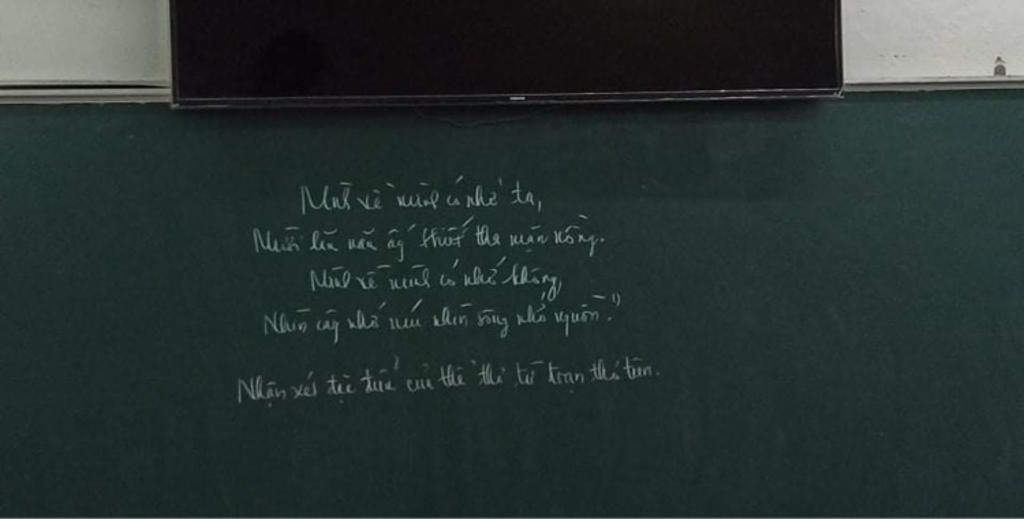 Mình về mình có nhớ ta,
Mười lăm năm ấy thiết tha mặn nồng.
Mình về mình có nhớ không,
Nhìn cây nhớ núi nhìn sông nhớ nguồn."
Nhận xét đặc điểm của thể thơ từ đoạn thơ trên.